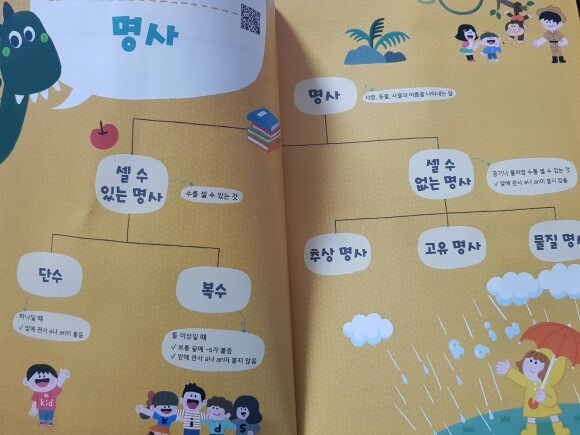 명사
명사
사람, 동물, 사물의 이름을 나타내는 말
셀 수
있는 명사
수를 셀 수 있는 것
셀 수
없는 명사
공기나 물처럼 수를 셀 수 없는 것
✓ 앞에 관사 a나 an이 붙지 않음
단수
하나일 때
✓ 앞에 관사 a나 an이 붙음
복수
둘 이상일 때
✓ 보통 끝에 -s가 붙음
✓ 앞에 관사 a나 an이 붙지 않음
추상 명사
고유 명사
물질
kid
kids